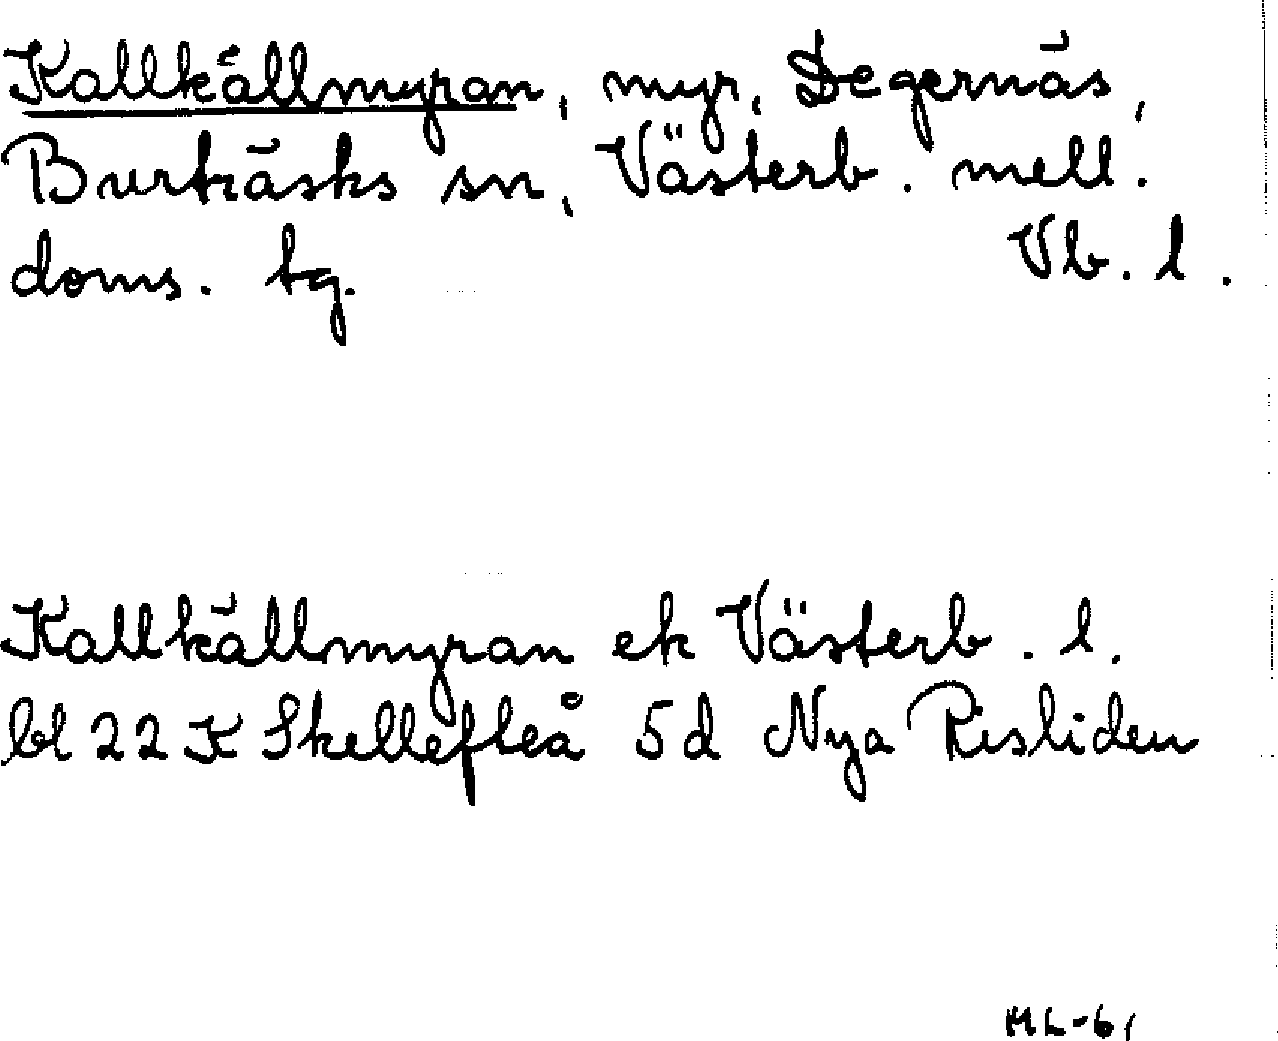 Kallkällmyran, myr, Degernäs,
Burträsks sn, Västerb. mell.
doms. tg. Vb. l.
Kallkällmyran ek Västerb. l.
bl 22 K Skellefteå 5d Nya Risliden
ML-61